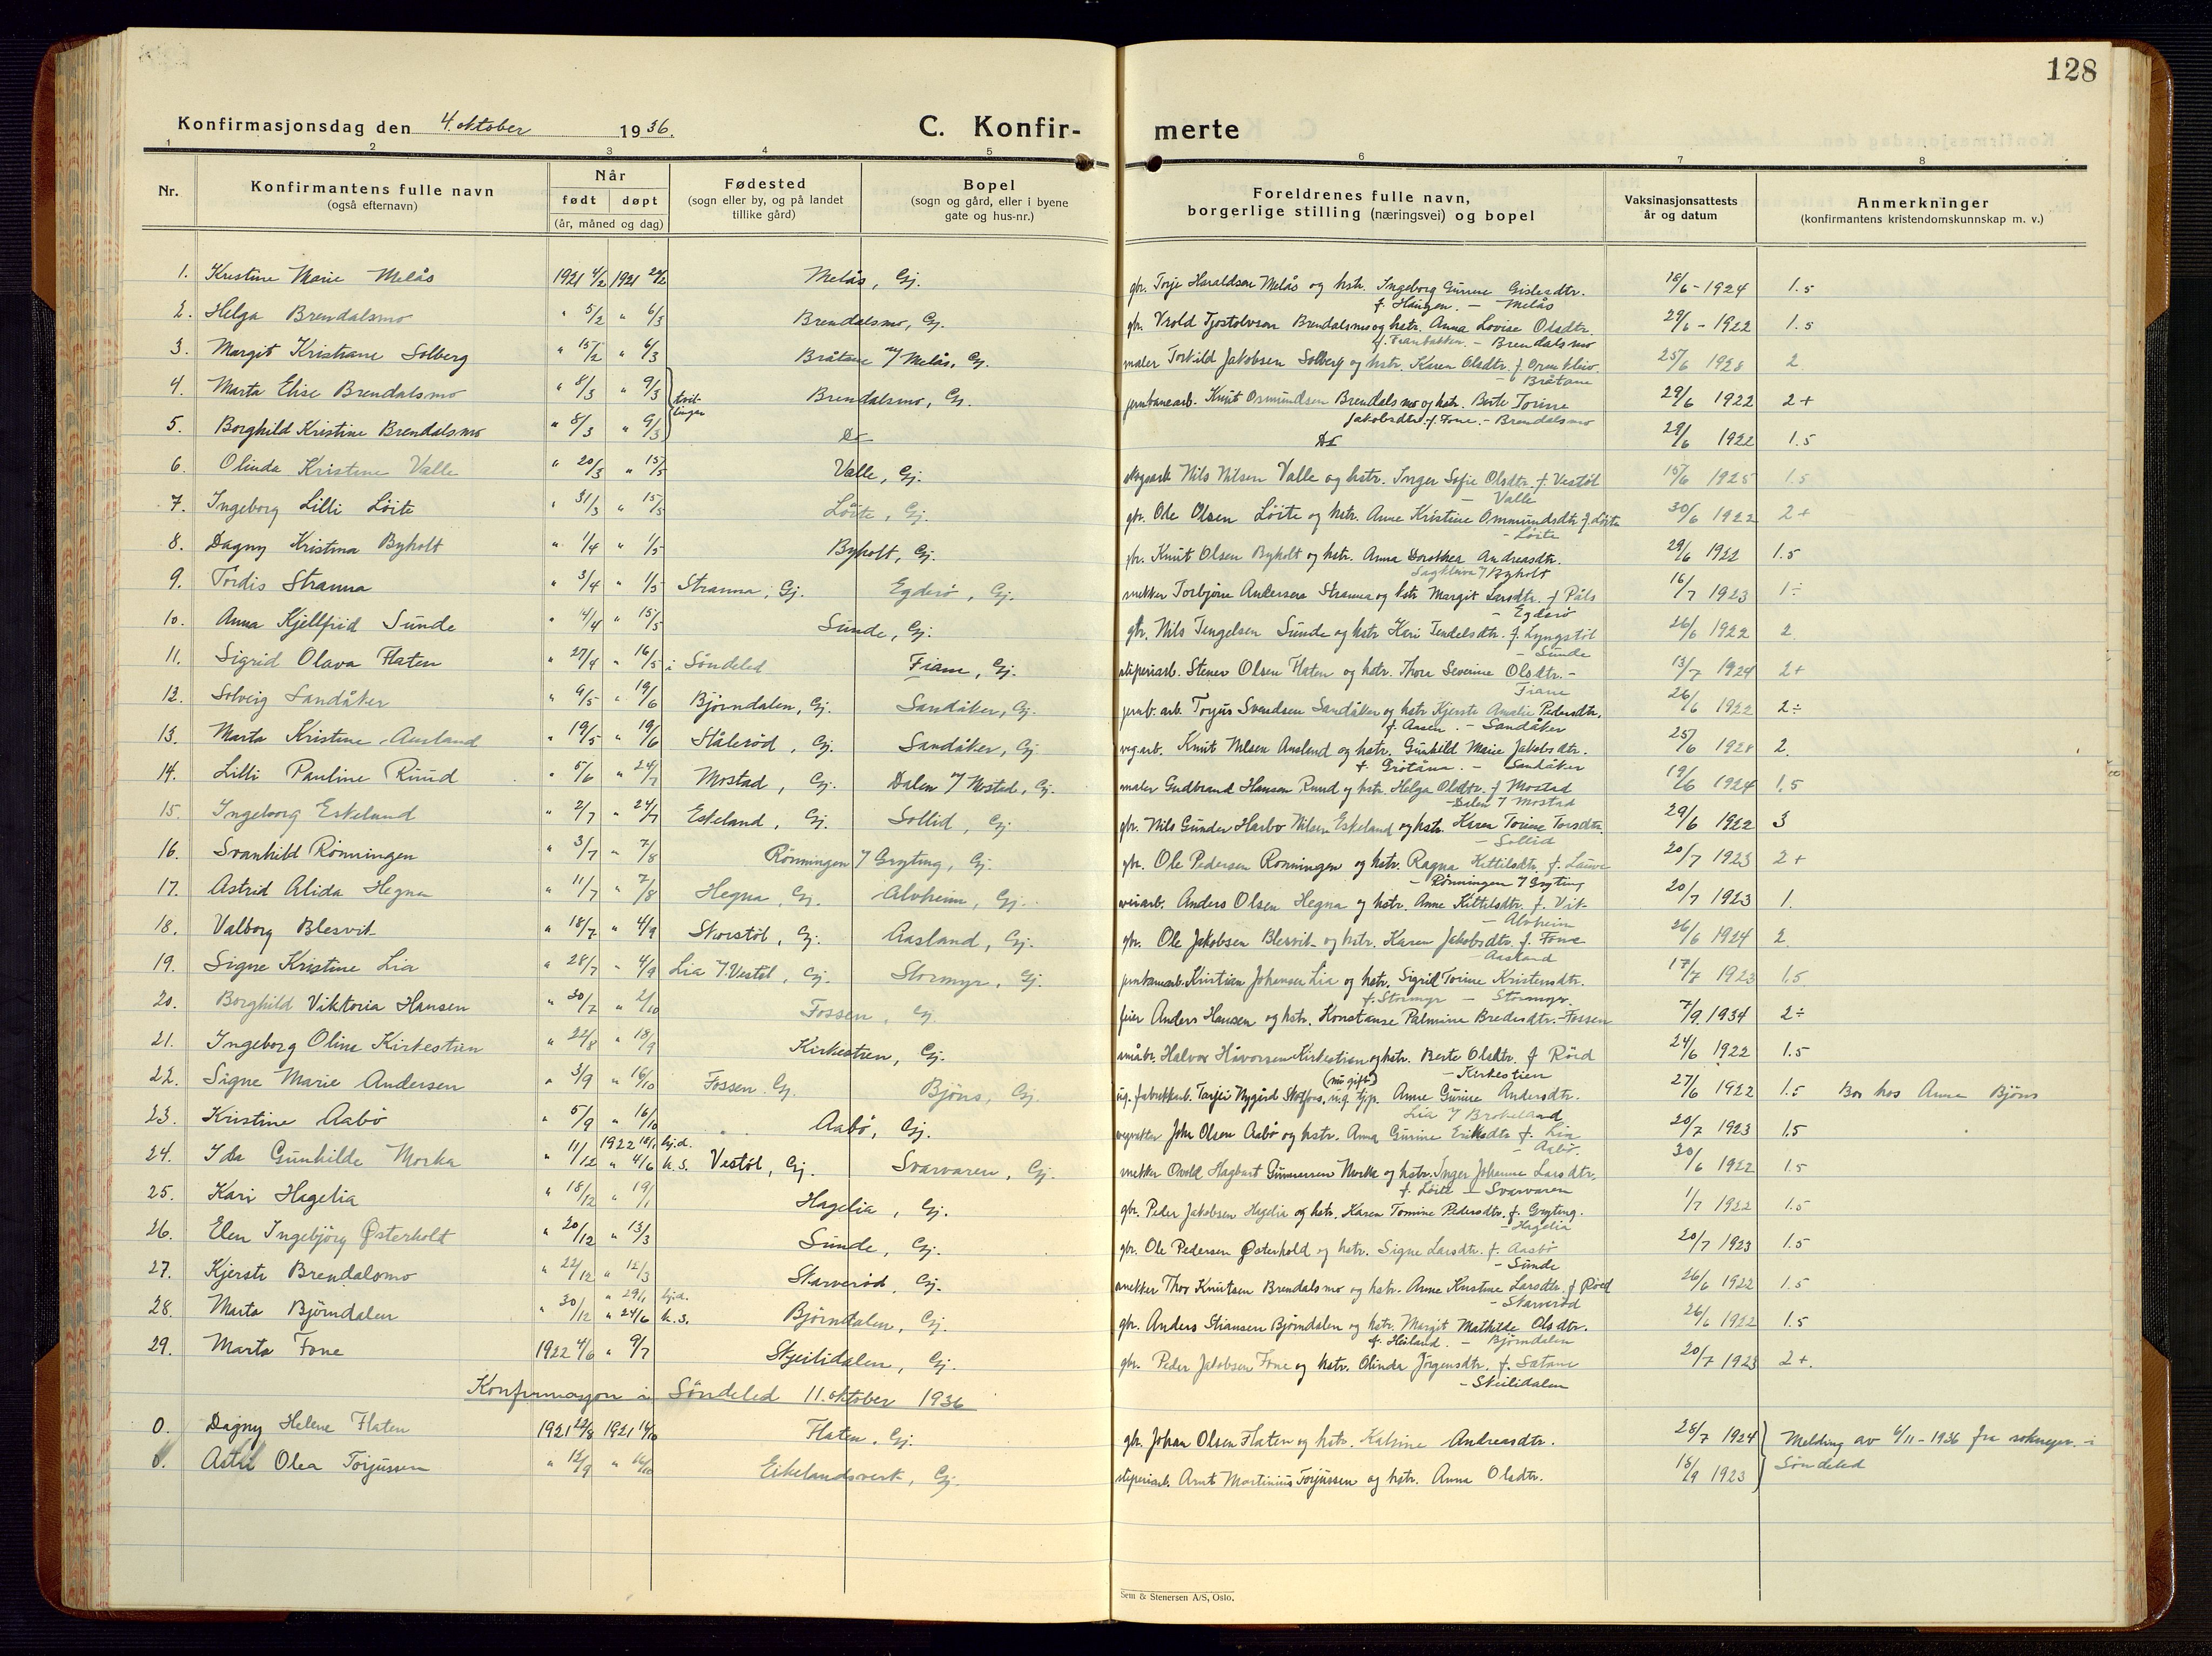 128
Konfirmasjonsdag den 4. oktober 1936. C. Konfir- merte
1 2 3 4 5 6 7 8
Nr. Konfirmantens fulle navn (også efternavn) Når født døpt (år, måned og dag) Fødested (sogn eller by, og på landet tillike gård) Bopel (sogn og gård, eller i byene gate og hus-nr.) Foreldrenes fulle navn, borgerlige stilling (næringsvei) og bopel Vaksinasjonsattests år og datum Anmerkninger (konfirmantens kristendomskunnskap m. v.)
1. Kristine Marie Melås 1921 4/2 1921 Melås, Gj. gbr. Torje Haraldsen Melås og hstr. Ingeborg Gurine Gislesdtr. 18/6 - 1924 1.5
f. Haugen. - Melås
2. Helga Brendalsmo " 5/2 " 6/3 Brendalsmo, Gj. gbr. Vrold Tjostolvson Brendalsmo og hstr. Anna Lovise Olsdtr. 29/6 - 1922 1.5
- Brendalsmo
3. Margit Kristiane Solberg " 15/2 " 6/3 Bråtane u/ Melås, Gj. maler Torkild Jakobsen Solberg og hstr. Karen Olsdtr. f. 25/6 1928 2
- Bråtane
4. Marta Elise Brendalsmo " 8/3 " 9/3 tvillinger Brendalsmo, Gj. jernbanearb. Knut Osmundsen Brendalsmo og hstr. Berte Torine 29/6 1922 2+
Jakobsdtr. f. Fone. - Brendalsmo
5. Borghild Kristine Brendalsmo " 8/3 " 9/3 Do Do 29/6 1922 1.5
6. Olinda Kristine Valle " 20/3 " 15/5 Valle, Gj. skogsarb. Nils Nilsen Valle og hstr. Inger Sofie Olsdtr. f. Vestøl 15/6 1925 1.5
- Valle
7. Ingeborg Lilli Löite " 31/3 " 15/5 Löite, Gj. gbr. Ole Olsen Löite og hstr. Anne Kristine Ommundsdtr. f. Löite 30/6 1922 2+
- Löite
8. Dagny Kristina Byholt " 1/4 " 1/5 Byholt, Gj. gbr. Knut Olsen Byholt og hstr. Anna Dorothea Andreasdtr. 29/6 1922 1.5
Byholt
9. Tordis Stranna " 3/4 " 1/5 Stranna, Gj. Egdesö, Gj. snekker Torbjörn Andersen Stranna og hstr Margit Larsdtr. f. Påls 16/7 1923 1÷
- Egdesö
10. Anna Kjellfrid Sunde " 14/4 " 15/5 Sunde, Gj. gbr. Nils Tengelsen Sunde og hstr Kari Tendelsdtr. f. Lyngstöl 26/6 1922 2.
- Sunde
11. Sigrid Olava Flaten " 27/4 " 16/5 i Söndeled Fiane, Gj. sliperiarb. Stener Olsen Flaten og hstr. Thora Severine Olsdtr. - 13/7 1924 2+
Fiane
12. Solveig Sandåker " 9/5 " 19/6 Björndalen, Gj. Sandåker, Gj. jernb. arb. Torjus Svendsen Sandåker og hstr Kjerste Amalie Pedersdtr. 26/6 1922 2÷
f. Aasen. - Sandåker
13. Marta Kristine Ausland " 19/5 " 19/6 Stålerød, Gj. Sandåker, Gj. veg.arb. Knut Nilsen Ausland og hstr. Gunhild Marie Jakobsdtr. 25/6 1928 2.
f. Grötåna. - Sandåker
14. Lilli Pauline Ruud " 5/6 " 24/7 Mostad, Gj. Dalen u/ Mostad, Gj. maler Gudbrand Hansen Ruud og hstr. Helga Olsdtr. f. Mostad 19/6 1924 1.5
- Dalen u/ Mostad
15. Ingeborg Eskeland " 2/7 " 24/7 Eskeland, Gj. Sollid, Gj. gbr. Nils Gunder Harbo Nilsen Eskeland og hstr. Karen Torine Torsdtr. 29/6 1922 3
- Sollid
16. Svanhild Rönningen " 3/7 " 7/8 Rönningen u/ Gryting, Gj. gbr. Ole Pedersen Rönningen og hstr. Ragna Kittilsdtr. f. 20/7 1923 2+
- Rönningen u/ Gryting
17. Astrid Alida Hegna " 11/7 " 7/8 Hegna, Gj. Alvheim, Gj. Anders Olsen Hegna og hstr. Anne Kittelsdtr. f. Vik 20/7 1923 1.
- Alvheim
18. Valborg Blesvik " 18/7 " 4/9 Skorstöl, Gj. Aasland, Gj. gbr. Ole Jakobsen Blesvik og hstr. Karen Jakobsdtr. f. Fone 26/6 1924 2.
- Aasland
19. Signe Kristine Lia " 28/7 " 4/9 Lia u/ Vestöl, Gj. Stormyr, Gj. jernbanearb. Kristian Johansen Lia og hstr. Sigrid Torine Kristensdtr. 17/7 1923 1.5
f. Stormyr - Stormyr.
20. Borghild Viktoria Hansen " 30/7 " 2/10 Fossen, Gj. feier Anders Hansen og hstr. Konstanse Palmine Bredesdtr. - Fossen 7/9. 1934 2÷
21. Ingeborg Oline Kirkestien " 22/8 " 18/9 Kirkestien, Gj. småbr. Halvor Håvorsen Kirkestien og hstr. Berte Olsdtr. f. Röed 24/6 1922 1.5
- Kirkestien
22. Signe Marie Andersen " 3/9 " 16/10 Fossen, Gj. Bjöns, Gj. ug. fabrikkarb. Tarjei Nygård Stoffens, ug. tjp. (nu gift) Anne Gurine Andersdtr. 27/6 1922 1.5 Bor hos Anna Bjöns
Lia u/ Brokeland
23. Kristine Aabö " 5/9 " 16/10 Aabö, Gj. vegvokter John Olsen Aabö og hstr. Anna Gurine Eriksdtr f. Lia 20/7 1923 1.5
- Aabö.
24. Ida Gunhilde Morka " 11/12 1922 18/1 hj.d. " 4/6 k. s. Vestöl, Gj. Svarvaren, Gj. snekker Osvold Hagbart Gunnersen Morka og hstr. Inger Johanne Larsdtr. 30/6 1922 1.5
f. Löite - Svarvaren
25. Kari Hagelia " 18/12 " 19/1 Hagelia, Gj. gbr. Peder Jakobsen Hagelia og hstr. Karen Tomine Pedersdtr. f. Gryting. 1/7 1922 1.5
- Hagelia
26. Elen Ingebjörg Østerholt " 20/12 " 13/3 Sunde, Gj. gbr. Ole Pedersen Østerhold og hstr. Signe Larsdtr. f. Aasbö 20/7 1923 1.5
- Sunde
27. Kjersti Brendalsmo " 22/12 " 12/3 Skarveröd, Gj. snekker Thor Knutsen Brendalsmo og hstr. Anne Kristine Larsdtr. f. Röed 26/6 1922 1.5
- Skarveröd
28. Marta Björndalen " 30/12 " 29/1 hj.d. " 24/6 k. s. Björndalen, Gj. gbr. Anders Stiansen Björndalen og hstr. Margit Mathilde Olsdtr. 26/6 1922 1.5
f. Heiland. - Björndalen
29. Marta Fone 1922 4/6 " 9/7 Skjeilidalen, Gj. gbr. Peder Jakobsen Fone og hstr. Olinda Jörgensdtr. f. Satane 20/7 1923 2+.
- Skeilidalen
Konfirmasjon i Söndeled 11. oktober 1936
0. Dagny Helene Flaten 1921 22/8 1921 Flaten, Gj. gbr. Johan Olsen Flaten og hstr. Katrine Andreasdtr. 28/7 1924 Melding av 6/11 - 1936 fra sokneprest i
0. Olea Torjussen " 12/9 " 16/10 Eikelandsverk, Gj. sliperiarb. Arnt Martinius Torjussen og hstr. Anna Olsdtr. 18/9 1923 Söndeled
Sem & Stenersen A/S, Oslo.